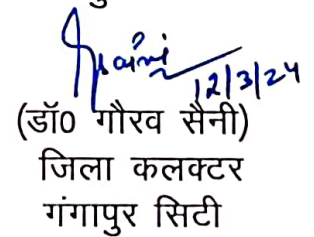 Saini
12/3/24
(डॉ0 गौरव सैनी)
जिला कलक्टर
गंगापुर सिटी